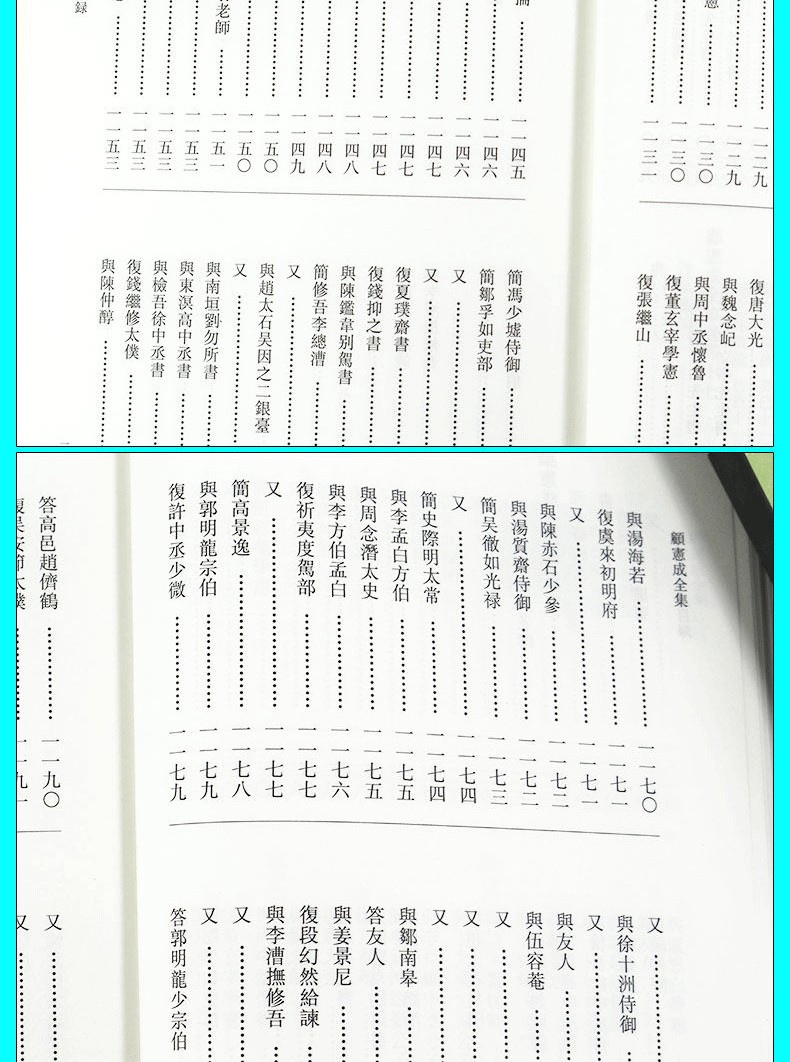 一一二九
一一二九
憲……一一三〇
一一三〇
一一三一
復唐大光……
與魏念屺……
與周中丞懷魯……
復董玄宰學憲……
復張繼山……
……一一四五
……一一四六
……一一四六
……一一四七
……一一四七
……一一四七
……一一四八
……一一四八
……一一四九
……一一五〇
……一一五〇
老師……一一五一
……一一五三
……一一五三
……一一五三
……一一五三
錄
簡馮少墟侍御……
簡鄒孚如吏部……
又……
又……
復夏璞齋書……
復錢抑之書……
與陳鑑韋別駕書……
簡修吾李總漕……
又……
與趙太石吴因之二銀臺
又……
與南垣劉勿所書……
與東溟高中丞書……
與檢吾徐中丞書……
復錢繼修太僕……
與陳仲醇……
顧憲成全集
與湯海若……一一七〇
復虞來初明府……一一七一
又……一一七一
與陳赤石少參……一一七二
與湯質齋侍御……一一七二
簡吴徹如光禄……一一七三
又……一一七四
簡史際明太常……一一七四
與李孟白方伯……一一七五
與周念潛太史……一一七五
與李方伯孟白……一一七六
復祈夷度駕部……一一七七
又……一一七七
簡高景逸……一一七八
與郭明龍宗伯……一一七九
復許中丞少微……一一七九
又……
與徐十洲侍御……
又……
與友人……
與伍容菴……
又……
又……
又……
與鄒南皋……
答友人……
與姜景尼……
復段幻然給諫……
與李漕撫修吾……
又……
又……
答郭明龍少宗伯
答高邑趙儕鶴……一一九〇
……一一九一
又……
又……